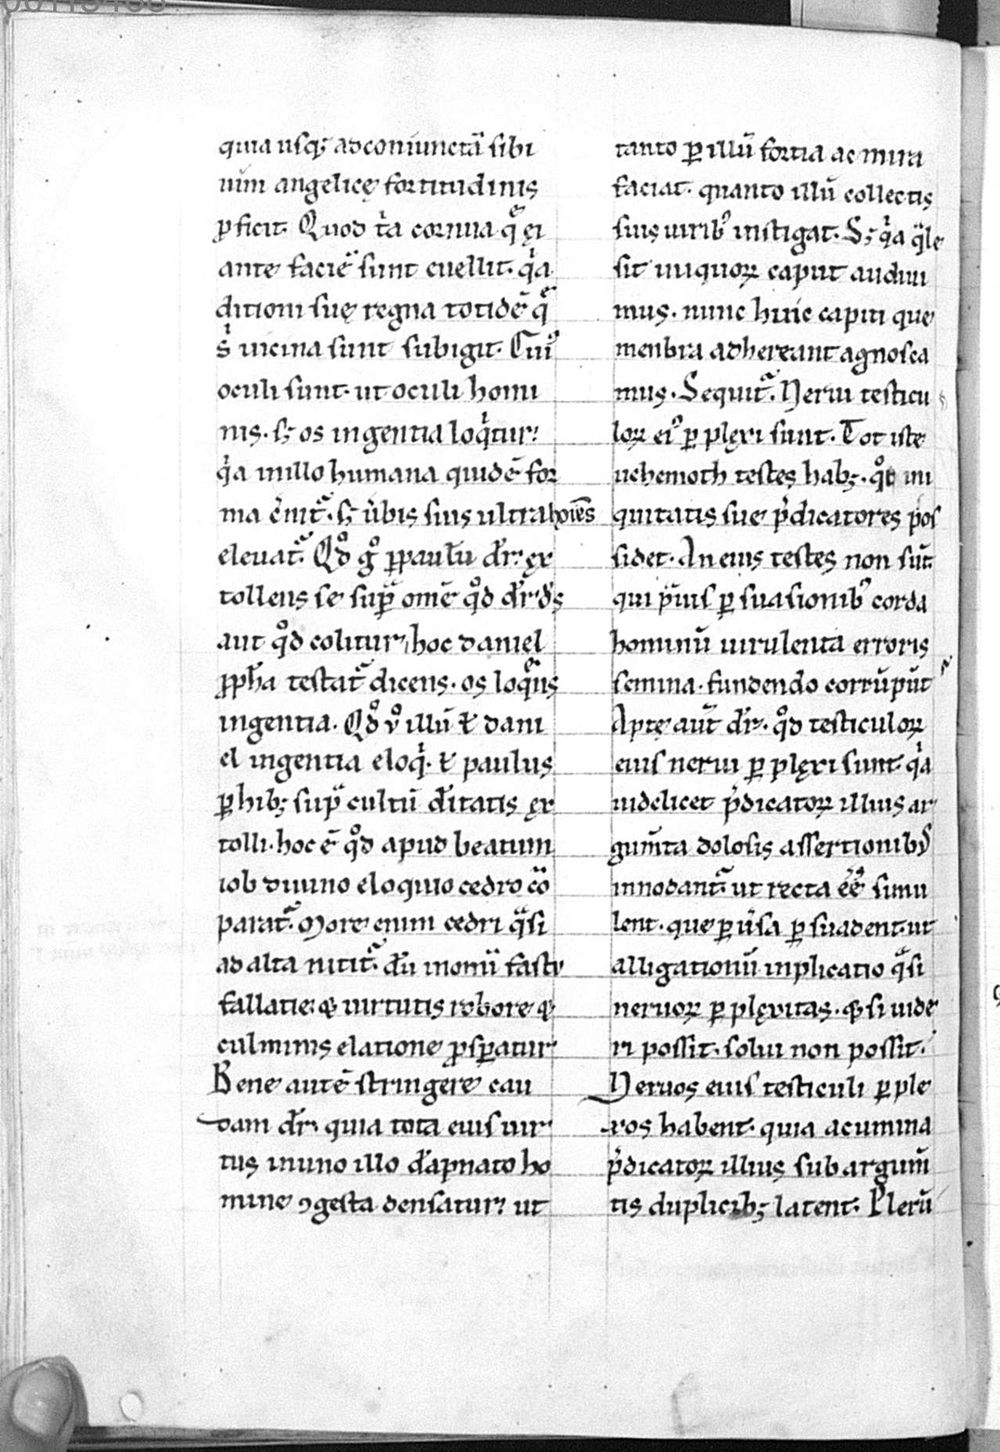 quia usq; adconiunctã sibi
uim angelicę fortitudinis
ꝓficit. Quod t̃a cornua q̃ ęi
ante faciẽ sunt euellit. q̃a
ditioni suę regna totidẽ q̃
s̉ uicina sunt subigit. Cui᾽
oculi sunt. ut oculi homi
nis. s; os ingentia loq̃tur.
q̃a inillo humana quidẽ for
ma c̃nit̃. s; ũbis suis ultra hoĩes
eleuat̃. Qđ g° ꝑpaulũ dr̃. ex
tollens se sup̃ omẽ qđ dr̃ d̃s
aut qđ colitur, hoc daniel
ꝓph̃a testat̃ dicens. os loq̃ns
ingentia. Qđ u° illũ & dani
el ingentia eloq̃. & paulus
ꝑhib; sup̃ cultũ d̃itatis ex
tolli. hoc ẽ qđ apud beatum
iob diuino eloquio cedro cõ
parat̃. More enim cedri q̃si
ad alta nitit̃. dũ inomĩ fastu
fallatię & uirtutis robore &
culminis elatione ꝓsꝑatur.
Bene autẽ stringere cau
dam dr̃. quia tota eius uir
tus inuno illo dãpnato ho
mine ꝯgesta densatur. ut
tanto ꝑ illũ fortia ac mira
faciat. quanto illũ collectis
suis uirib᾽ instigat. S; q̃a q̃le
sit iniquoꝝ caput audiui
mus. nunc huic capiti que
menbra adhereant agnosca
mus. Sequit̃. Nerui testicu
loꝝ ei᾽ ꝑplexi sunt. Tot iste
uehemoth testes hab;. qđ ini
quitatis sue p̃dicatores pos
sidet. An eius testes non sũt.
qui p̃uis ꝑsuasionib᾽ corda
hominũ uirulenta erroris
semina. fundendo corrũpũt
Apte aut̃ dr̃. qđ testiculoꝝ
eius nerui ꝑplexi sunt. q̃a
uidelicet p̃dicatoꝝ illius ar
gum̃ta dolosis assertionib᾽
innodant̃. ut recta ẽẽ simu
lent. que ꝑũsa ꝑsuadent. ut
alligationũ inplicatio q̃si
neruoꝝ ꝑplexitas. & si uide
ri possit. solui non possit.
Neruos eius testiculi ꝑple
xos habent. quia acumina
p̃dicatoꝝ illius sub argum̃
tis duplicib; latent. Plerũ